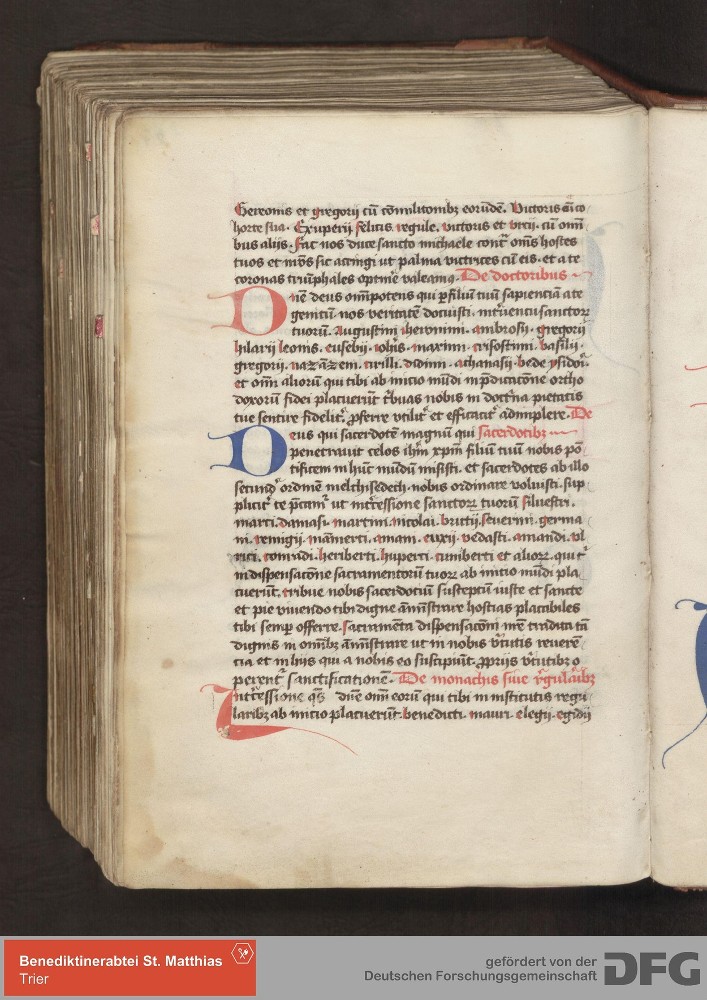 Gereonis et gregorij cū cōmilitonibꝫ eorūdē. Victoris cū co
horte sua. Exuperij felicis. regule. victoris et vrcij. cū omī
bus alijs. Fac nos duce sancto michaele cont̄ om̄s hostes
tuos et mōs sic accingi ut palma victrices cū eis. et a te
coronas triūphales optine valeamꝰ. De doctoribus
Dn̄e deus omīpotens qui ꝑ filiū tuū sapienciā a te
genitū nos veritatē docuisti. intuentu sanctoꝝ
tuorū. Augustini iheronimi. ambrosij. gregorij
hilarij leonis. eusebij. ioh̄is. maximi. crisostimi. basilij.
gregorij. nazāzem. cirilli. didimi. athanasij. bede ysidori.
et omī aliorū qui tibi ab inicio mūdi in p̄dicacōne ortho
doxorū fidei placuerūt t̓buas nobis in doct̓na pietatis
tue sentire fidelit̓. ꝓferre vtilit̓ et efficacit̓ adimplere. De
Deus qui sacerdotē magnū qui sacerdotibꝫ
penetrauit celos ih̄m xp̄m filiū tuū nobis pō
tificem in hūc mūdū misisti. et sacerdotes ab illo
secundū ordinē melchisedech. nobis ordinare voluisti. sup
plicit̓ te p̄cam̄ ut int̓cessione sanctoꝝ tuorū siluestri.
marci. damasi. martini. nicolai. brictij. seuerini. germa
ni. remigij. māmerti. amani. euxij. vedasti. amandi. vl
rici. conradi. heriberti. huperti. cuniberti et alioꝝ. qui t̓
in dispensacōne sacramentorū tuoꝝ ab inicio mūdi pla
cuerūt. tribue nobis sacerdociū susceptū iuste et sancte
et pie viuendo tibi digne āmistrare hostias placabiles
tibi semꝑ offerre. sacramenta dispensacōni nr̄e tradita tā
dignis in omībꝫ āmīstrare ut in nobis v̓tutis reuerē
cia et in hijs qui a nobis eo suscipiūt. ꝓprijs v̓tutibꝫ o
perent̓ sanctificationē. De monachis siue r̓gularibꝫ
Int̓cessione qs̄ dn̄e omī eorū qui tibi in institutis regu
laribꝫ ab inicio placuerūt. benedicti. mauri. elegij. egidij
Benediktinerabtei St. Matthias
Trier
gefördert von der
Deutschen Forschungsgemeinschaft
DFG